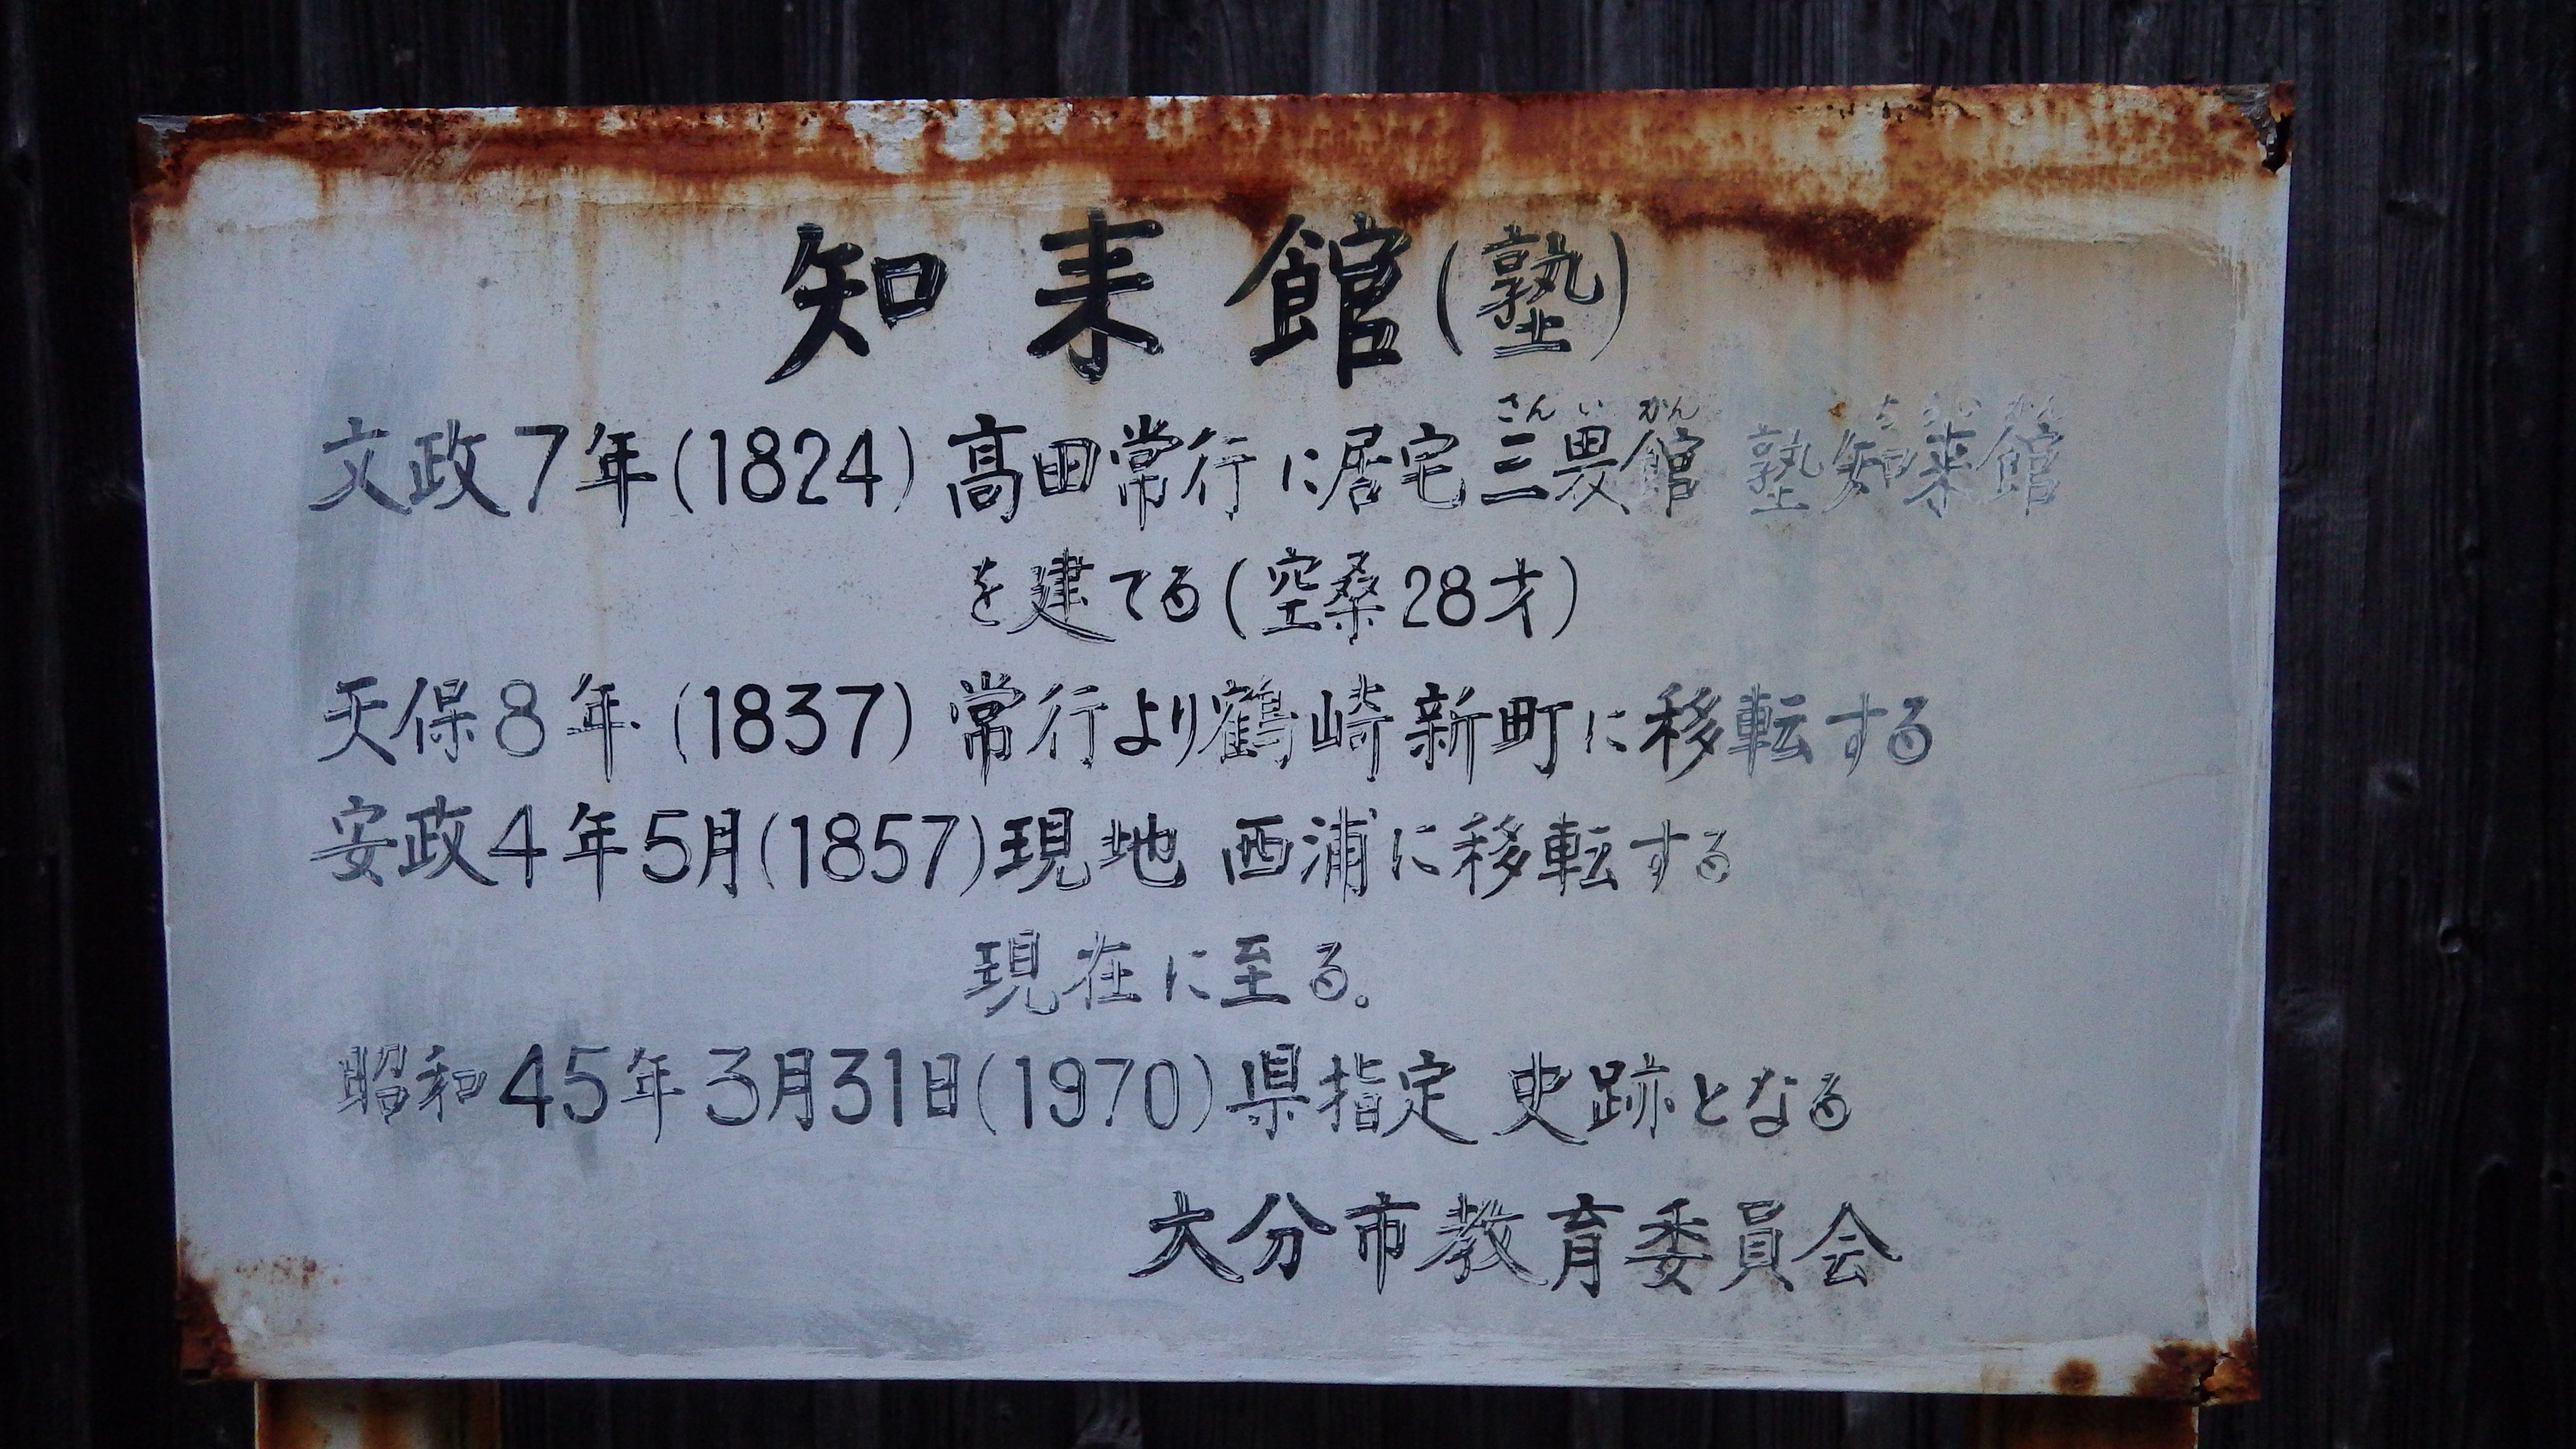 知来館(塾)
文政7年(1824)高田常行に居宅三畏館 塾知来館
さんいかん ちらいかん
を建てる(空桑28才)
天保8年(1837)常行より鶴崎新町に移転する
安政4年5月(1857)現地 西浦に移転する
現在に至る。
昭和45年3月31日(1970)県指定 史跡となる
大分市教育委員会